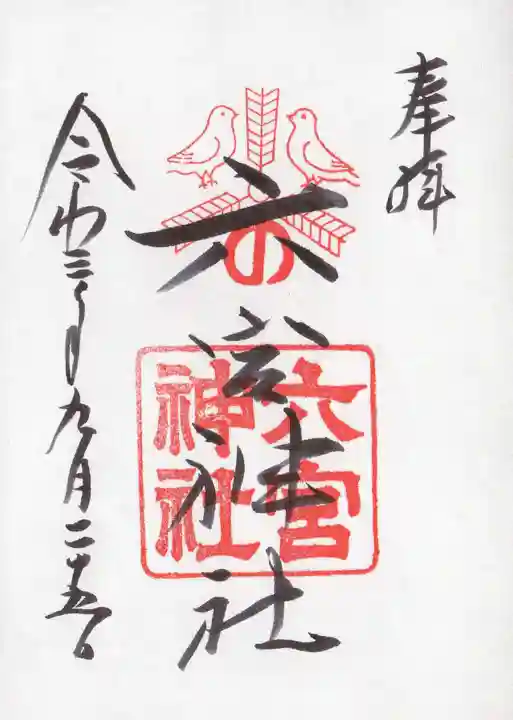 奉拝
の
六宮神社
六宮
神社
令和三年九月二十五日